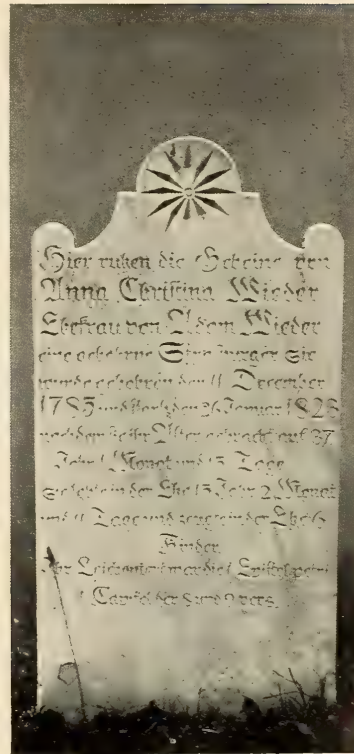 Hier ruhen die Gebeine von
Anna Christina Wieder
Ehefrau von Adam Wieder
eine gebohrne sie
wurde gebohren den 11 December
und starb den 26 Januar
nachdem sie ihr Alter gebracht auf 37
Jahr 1 Monat und 15 Tage
Sie lebte in der Ehe 15 Jahr 2 Monat
und 11 Tage und zeugte in der Ehe 6
Kinder
Ihr Leichentext war die 1 Epistel petri
1 Capitel der vers